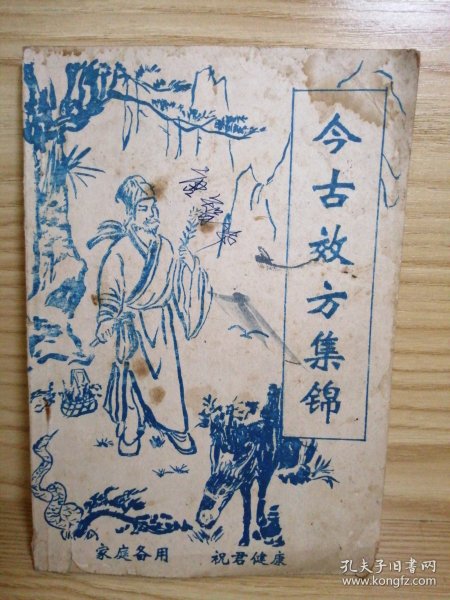 今古效方集锦
家庭备用 祝君健康
孔夫子旧书网
www.kongfz.com